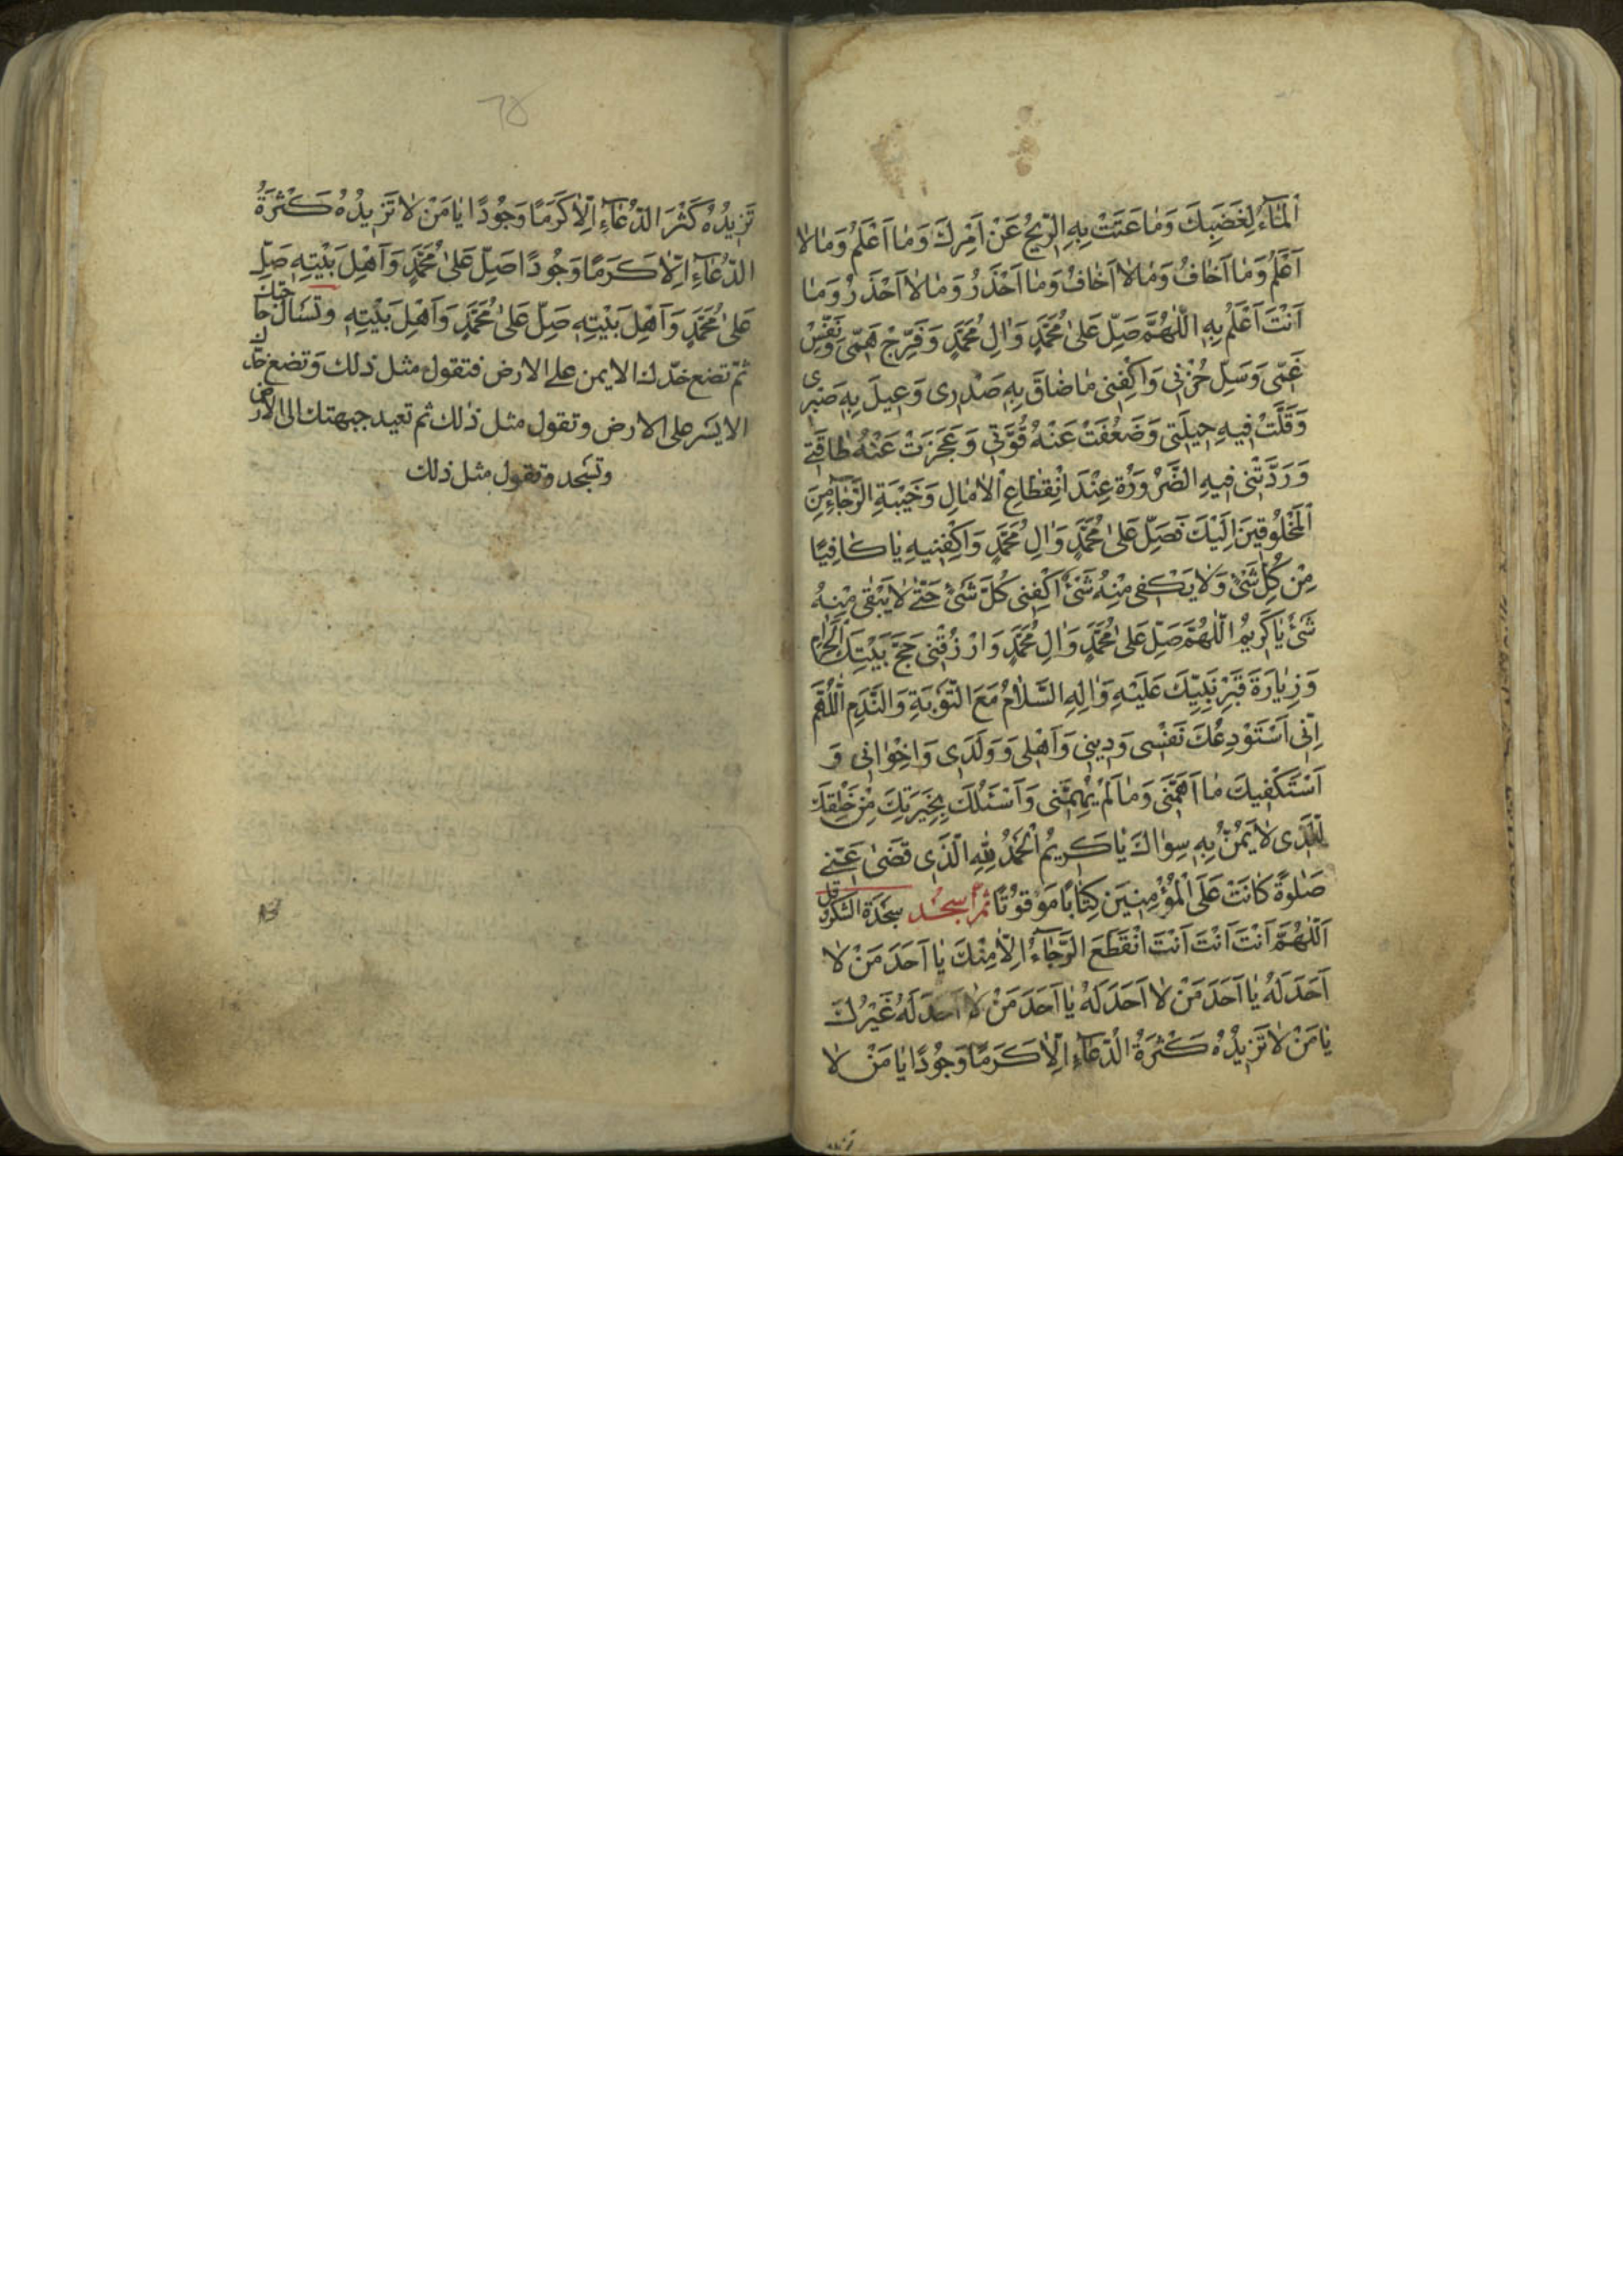 اَلْمٰاءُ لِغَضَبِكَ وَمٰا عَتَتْ بِهِ الرّيحُ عَنْ اَمْرِكَ وَمٰا اَعْلَمُ وَمٰا لاٰ
اَعْلَمُ وَمٰا اَخٰافُ وَمٰا لاٰ اَخٰافُ وَمٰا اَحْذَرُ وَمٰا لاٰ اَحْذَرُ وَمٰا
اَنْتَ اَعْلَمُ بِهِ اَللّٰهُمَّ صَلِّ عَلىٰ مُحَمَّدٍ وَاٰلِ مُحَمَّدٍ وَفَرِّجْ هَمّى وَنَفِّسْ
غَمّى وَسَلِّ حُزْنى وَاكْفِنى مٰا ضٰاقَ بِهِ صَدْرى وَعيلَ بِهِ صَبْرى
وَقَلَّتْ فيهِ حيلَتى وَضَعُفَتْ عَنْهُ قُوَّتى وَعَجَزَتْ عَنْهُ طٰاقَتى
وَرَدَّتْنى فيهِ الضَّرْوُرَةُ عِنْدَ انْقِطٰاعِ اْلاٰمٰالِ وَخَيْبَةِ الرَّجٰاءِ مِنَ
اَلْمَخْلُوقينَ اِلَيْكَ فَصَلِّ عَلىٰ مُحَمَّدٍ وَاٰلِ مُحَمَّدٍ وَاكْفِنيهِ يٰا كٰافِيًا
مِنْ كُلِّ شَىْءٍ وَلاٰ يَكْفى مِنْهُ شَىْءٌ اكْفِنى كُلَّ شَىْءٍ حَتّىٰ لاٰ يَبْقىٰ مِنْهُ
شَىْءٌ يٰا كَريمُ اَللّٰهُمَّ صَلِّ عَلىٰ مُحَمَّدٍ وَاٰلِ مُحَمَّدٍ وَارْزُقْنى حَجَّ بَيْتِكَ الْحَرٰامِ
وَزِيٰارَةَ قَبْرِ نَبِيِّكَ عَلَيْهِ وَاٰلِهِ السَّلاٰمُ مَعَ التَّوْبَةِ وَالنَّدَمِ اَللّٰهُمَّ
اِنّى اَسْتَوْدِعُكَ نَفْسى وَدينى وَاَهْلى وَوَلَدى وَاِخْوٰانى وَ
اَسْتَكْفيكَ مٰا اَهَمَّنى وَمٰا لَمْ يُهِمَّنى وَاَسْئَلُكَ بِخِيَرَتِكَ مِنْ خَلْقِكَ
الَّذى لاٰ يَمُنُّ بِهِ سِوٰاكَ يٰا كَريمُ اَلْحَمْدُ لِلّٰهِ الَّذى قَضىٰ عَنّى
صَلٰوةً كٰانَتْ عَلَى الْمُؤْمِنينَ كِتٰابًا مَوْقُوتًا ثمّ اسجُد سجدة الشكر وقل
اَللّٰهُمَّ اَنْتَ اَنْتَ اَنْتَ انْقَطَعَ الرَّجٰاءُ اِلاّٰ مِنْكَ يٰا اَحَدَ مَنْ لاٰ
اَحَدَ لَهُ يٰا اَحَدَ مَنْ لاٰ اَحَدَ لَهُ يٰا اَحَدَ مَنْ لاٰ اَحَدَ لَهُ غَيْرُكَ
يٰا مَنْ لاٰ تَزيدُهُ كَثْرَةُ الدُّعٰاءِ اِلاّٰ كَرَمًا وَجُودًا يٰا مَنْ لاٰ
٦٥
تَزيدُهُ كَثْرَ الدُّعٰاءِ اِلاّٰ كَرَمًا وَجُودًا يٰا مَنْ لاٰ تَزيدُهُ كَثْرَةُ
الدُّعٰاءِ اِلاّٰ كَرَمًا وَجُودًا صَلِّ عَلىٰ مُحَمَّدٍ وَاَهْلِ بَيْتِهِ صَلِّ
عَلىٰ مُحَمَّدٍ وَاَهْلِ بَيْتِهِ صَلِّ عَلىٰ مُحَمَّدٍ وَاَهْلِ بَيْتِهِ وتسَال حاجتك
ثمّ تضع خدّك الايمن على الارض فتقول مثل ذلك وَتضع خدّك
الايسَر على الارض وتقول مثل ذلك ثم تعيد جبهتك الى الارض
وتسَجد وتقول مثل ذلك